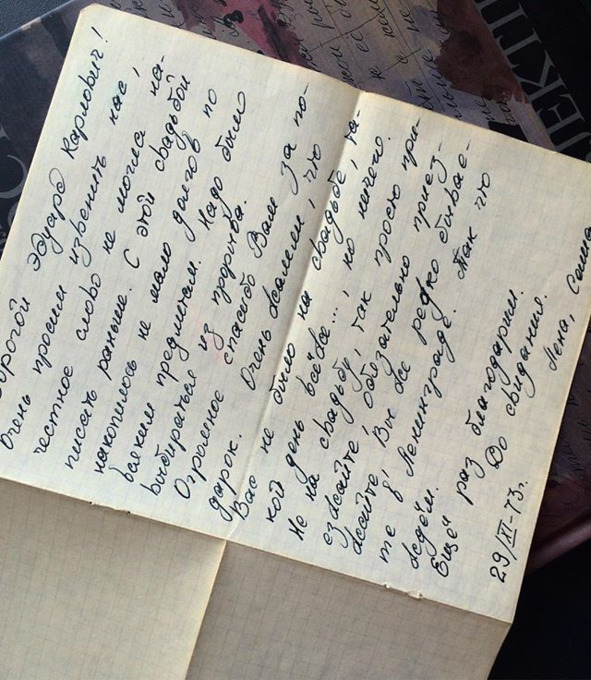 Дорогой Эдуард Карлович!
Очень просим извенить нас,
честное слово не могли на-
писать раньше. С этой свадьбой
накопилось не мало долгов по
всяким предметам. Надо было
выбираться из прорыва.
Огромное спасибо Вам за по-
дарок. Очень жалеем, что
Вас не было на свадьбе, та-
кой день всё же..., но ничего.
Не на свадьбу, так просто при-
езжайте, обязательно приез-
жайте, Вы же редко бывае-
те в Ленинграде. Так что
ждём.
Ещё раз благодарим.
До свидания.
Лена, Саша
29/XI-73г.
JEKTI